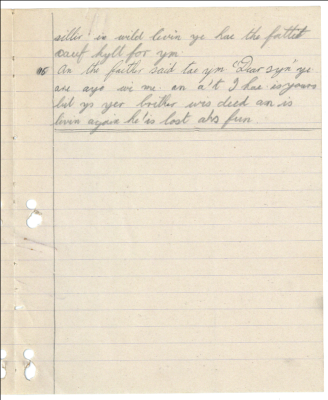 siller' in wild levin ye hae the fattet
cauf kyllt for yn.
An the faither said tae yn "Dear syn' ye
are aye wi me an a't I hae is yours
bit ys yer brither wis deed an is
levin again he'is lost an's fun.